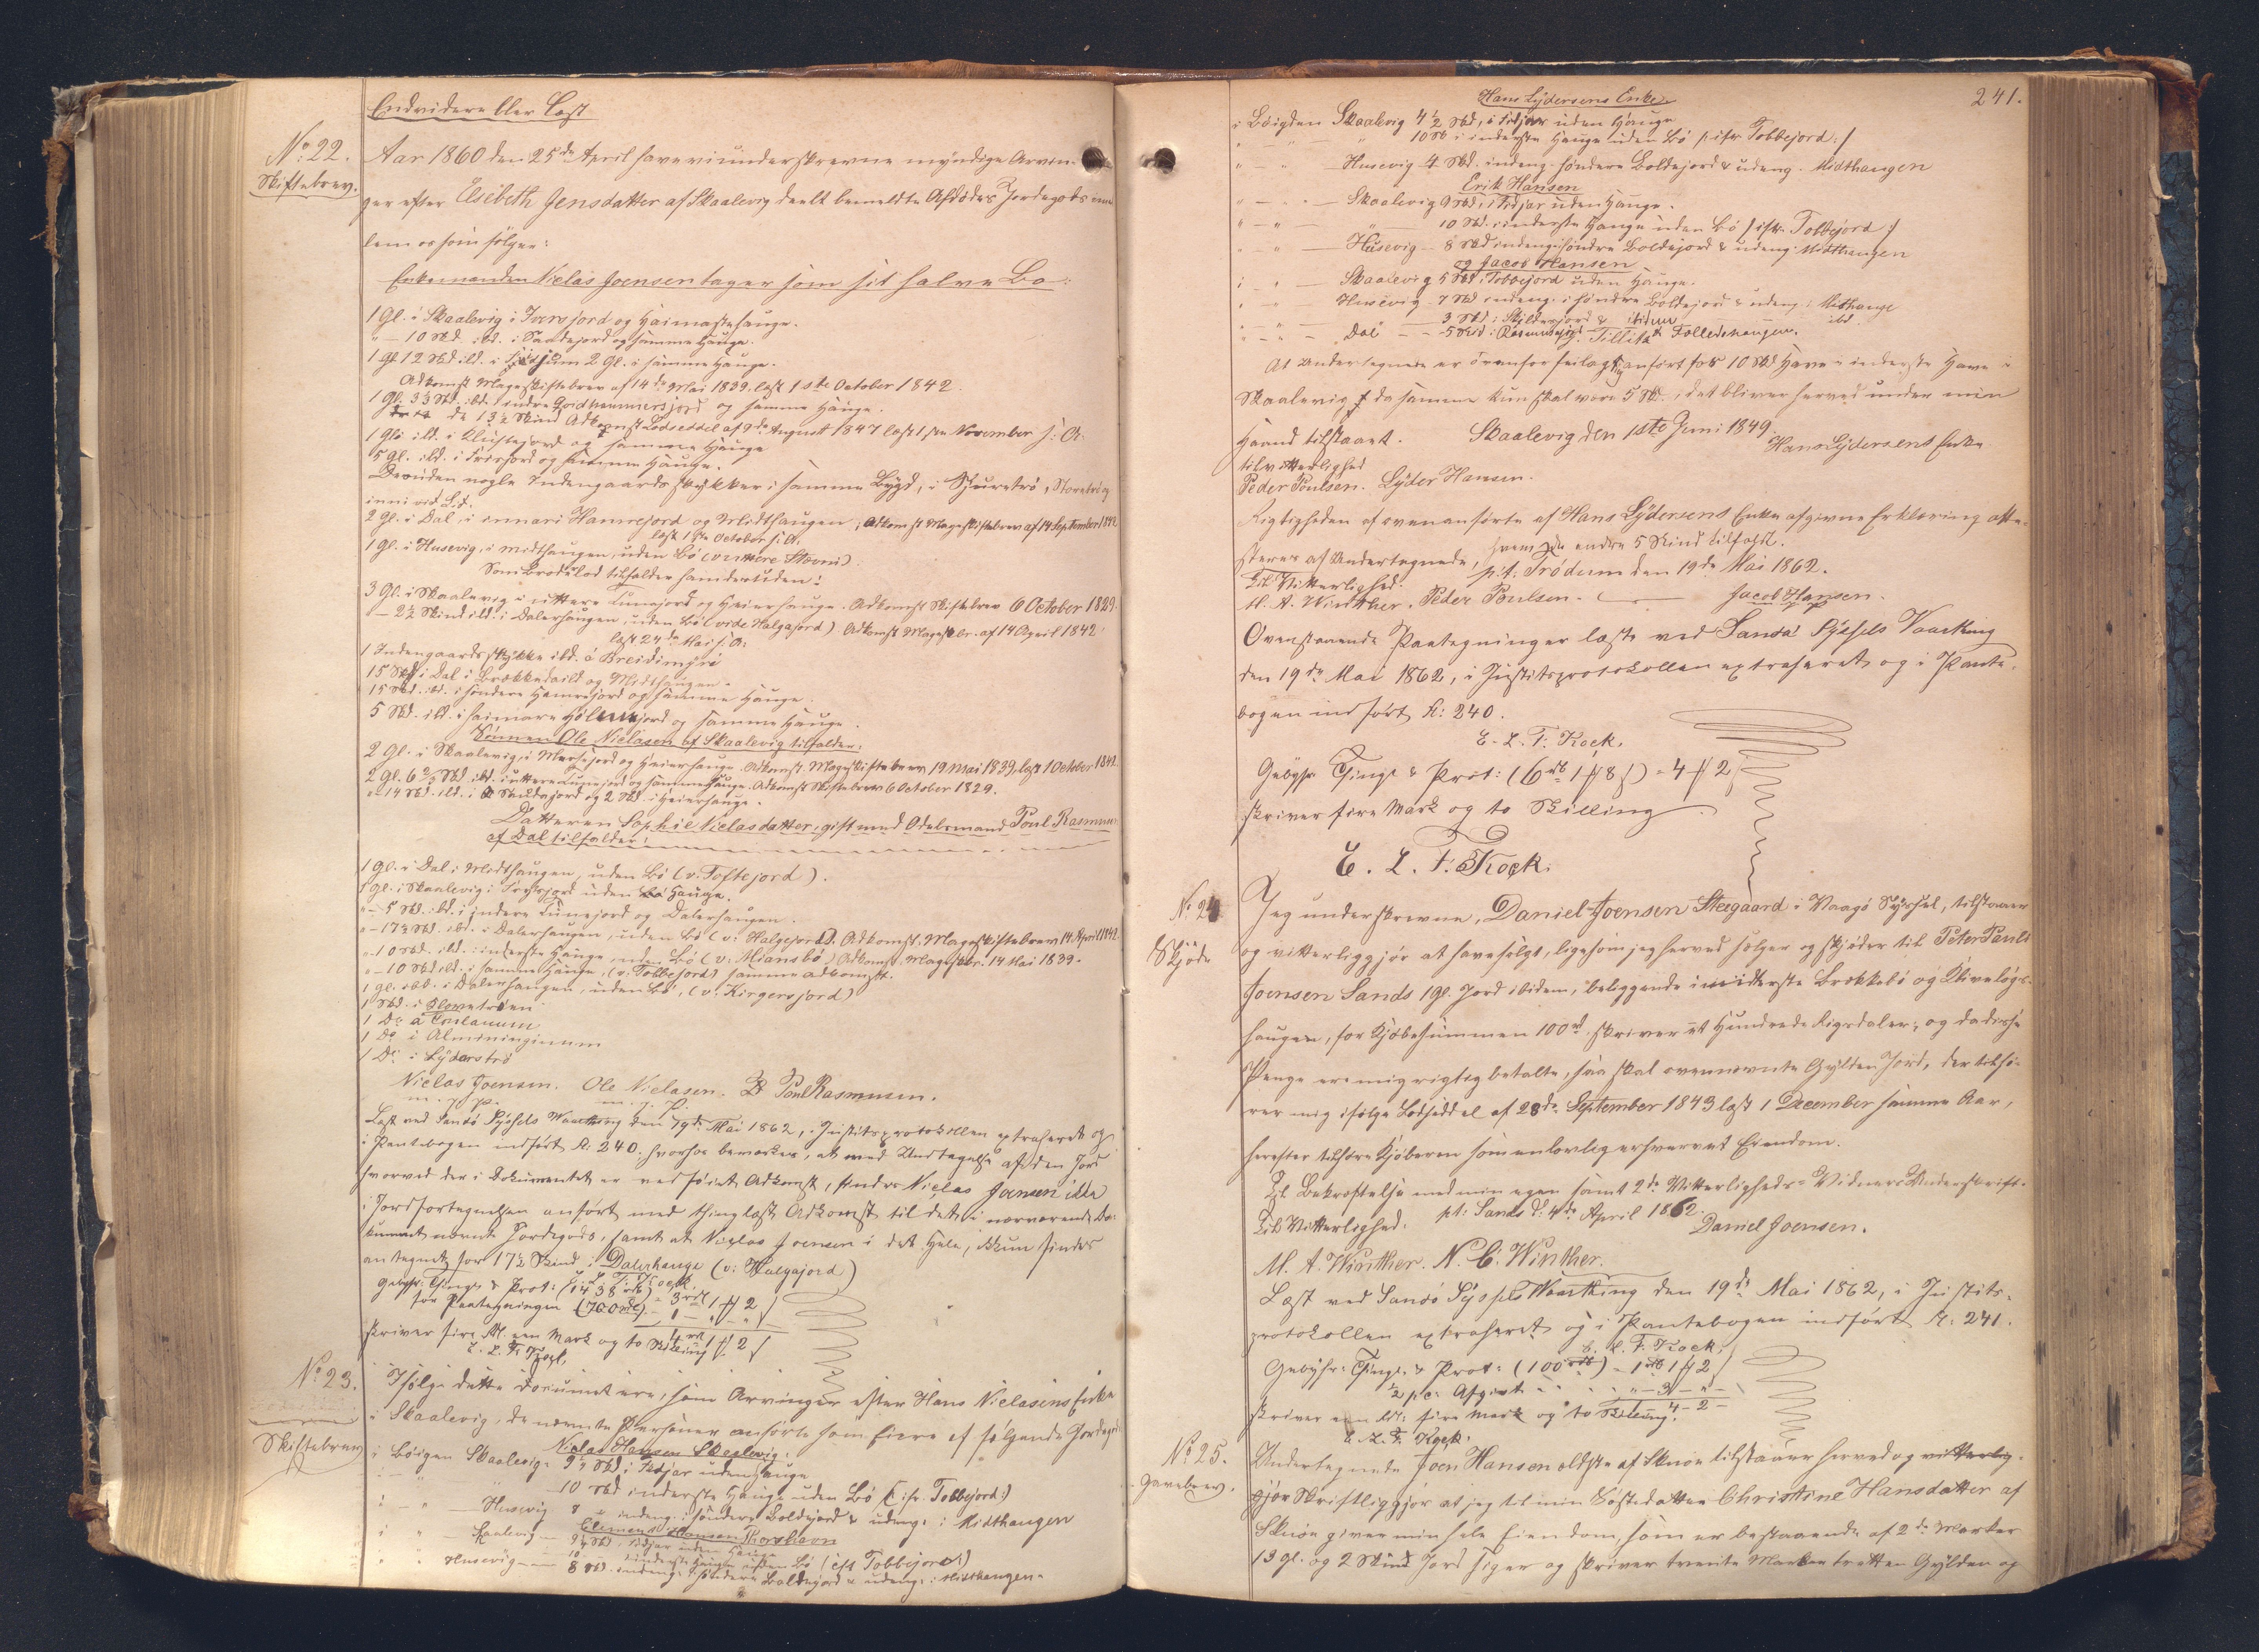 Endvidere blev læst
No. 22.
Skiftebrev.
Aar 1860 den 25de April have vi underskrevne myndige Arvin-
ger efter Elsebeth Jensdatter af Skaalevig deelt bemeldte Afdødes Jordegods imel
lem os som følger:
Enkemanden Niclas Joensen tager som sit halve Bo:
1 Gl. i Skaalevig i Ivarsjord og Haimastehauge.
" — 10 Skd ibd. i Sandejord og samme Hauge.
1 Gl 12 Skd ibd. i 2 Gl. i samme Hauge.
Adkomst Mageskiftebrev af 14de Mai 1839. læst 1ste October 1842.
1 Gl. 3½ Skd. ibd. i indre og samme Hauge.
de 13½ Skind Adkomst Lodseddel af 9de August 1847 læst 1ste November s: A:
1 Gl. ibd. i Klustejord og samme Hauge
5 Gl. ibd. i og samme Hauge.
Desuden nogle Indengaards stykker i samme Bygd, i
2 Gl. i Dal, i innari Hamrejord og Midthaugen; Adkomst Mageskiftebrev af 14 September 1842
læst 1ste October s. A.
1 Gl. i Husevig, i Midthaugen, uden Bø (v: uttere Stovni)
Som Brodelod tilfalder ham desuden:
3 Gl. i Skaalevig i uttere Tunejord og Heierhauge. Adkomst Skiftebrev 6 October 1829.
— 2½ Skind ibd. i Dalerhaugen, uden Bø (vide Halgajord) Adkomst Magesk.br. af 14 April 1842
læst 24de Mai s: A:
1 Indengaards stykke ibd. á Breidimyri
15 Skd i Dal i og Midthaugen.
15 Skd. ibd. i søndere Hamrejord og samme Hauge.
5 Skd. ibd. i og samme Hauge.
Sønnen Ole Niclasen af Skaalevig tilfalder:
2 Gl. i Skaalevig, i og Heierhauge. Adkomst. Mageskiftebrev 19 Mai 1839, læst 1 October 1842.
2 Gl. 6⅔ Skd ibd. i uttere Tunejord og samme Hauge. Adkomst Skiftebrev 6 October 1829.
" 14 Skd. ibd. i Skildejord og 2 Skd. i Heierhauge.
Datteren Sophie Niclasdatter, gift med Odelsmand Poul Rasmussen
af Dal tilfalder:
1 Gl. i Dal i Midthaugen, uden Bø (v. Toftejord).
1 Gl. i Skaalevig i uden Hauge.
" — 5 Skd. ibd. i indere Tunejord og Dalerhaugen.
" — 17½ Skd. ibd. i Dalerhaugen, uden Bø (v: Halgejord). Adkomst. Mageskiftebrev 14 April 1842.
" — 10 Skd. ibd. i inderste Hauge uden Bø (v: Miansbø) Adkomst Magesk.br. 14 Mai 1839.
" — 10 Skd ibd. i samme Hauge, (v: Tobbejord) samme Adkomst.
1 Gl. ibd. i Dalerhaugen, uden Bø, (v: Kirgersjord)
1 Skd. i
1 Do á
1 Do i Alminninginum
1 Do i Lyderstrø
Niclas Joensen. Ole Niclasen. Poul Rasmussen.
Læst ved Sandø Syssels Vaarthing den 19de Mai 1862, i Justitsprotokollen extraheret og
i Pantebogen indført Fl. 240, hvorhos bemærkes, at med Undtagelse af den Jord
hvorved der i Dokumentet er vedføiet Adkomst, findes Niclas Joensen ikke
i Jordfortegnelsen anført med thinglæst Adkomst til det i nærværende Do-
kument nævnte Jordegods, samt at Niclas Joensen i det Hele, ikkun findes
antegnet for 17½ Skind i Dalerhauge (v: Halgajord)
E. L. F. Kock.
Gebyhr: Thingl. & Prot: (1438 rd) = 3 rd 1 # 2 ß
for Paategningen (700 rd) — 1 — " — "
4 rd 1 # 2 ß
skriver fire Rd. een Mark og to Skilling
E. L. F. Kock.
No. 23.
Skiftebrev
Ifølge dette Document ere, som Arvinger efter Hans Nielsens Enke
i Skaalevig, de nævnte Personer anførte som Eiere af følgende Jordegods
Niclas Hansen Skaalevig:
i Bøigden Skaalevig: 9½ Skd i Tidjar uden Hauge
10 Skd inderste Hauge uden Bø (: ifr. Tobbejord:)
i — " — Husevig 8 " indeng. i søndere Boldejord & udeng. i Midthaugen
Clemens Hansen Thorshavn
i " — Skaalevig — 9½ Skd, i Tidjar uden Hauge
10 " i inderste Hauge uden Bø (ifr Tobbejord:)
" " Husevig — 8 Skd. indeng. i søndere Boldejord & udeng. i Midthaugen.
241.
Hans Lydersens Enke
i Bøigden Skaalevig 4½ Skd, i Tidjar uden Hauge
" — " — " 10 Sk i inderste Hauge uden Bø (: ifr Tobbejord:)
" — " Husevig 4 Skd. indeng. søndere Boldejord & udeng. Midthaugen
Erik Hansen
" — " — Skaalevig 9 Skd, i Tidjar uden Hauge.
" — " — " 10 Skd. i inderste Hauge uden Bø (ifr. Tobbejord:)
" — " — Husevig — 8 Skd indeng. i søndre Boldejord & udeng. Midthaugen
og Jacob Hansen
i " — Skaalevig 5 Skd i Tobbejord uden Hauge.
" — Husevig — 7 Skd indeng. i søndre Boldejord & udeng. i Midthauge
" — " — " 3 Skd: Skildesjord & ibidem — ibd.
" — " — Dal — 5 Skd: Rasmusejord. Tillitz & Folledehaugen.
At Undertegnede er ovenfor feilagtig anført for 10 Skd Have i inderste Have i
Skaalevig, da samme kun skal være 5 Sk., det bliver herved under min
Haand tilstaaet. Skaalevig den 1ste Juni 1849.
Hans Lydersens Enke
til Vitterlighed
Peder Poulsen. Lyder Hansen.
Rigtigheden af ovenanførte af Hans Lydersens Enke afgivne Erklæring atte-
steres af Undertegnede, hvem de andre 5 Skind tilfaldt.
p.t. Trødum den 19de Mai 1862.
Til Vitterlighed.
M. A. Winther. Peder Poulsen. Jacob Hansen.
Ovenstaaende Paategninger læste ved Sandø Syssels Vaarthing
den 19de Mai 1862, i Justitsprotokollen extraheret og i Pante-
bogen indført Fl: 240.
E. L. F. Kock.
Gebyhr Thingl & Prot: (6 rd 1 # 8 ß) = 4 # 2 ß
skriver fire Mark og to Skilling
E. L. F. Kock.
No. 24
Skjøde
Jeg underskrevne, Daniel Joensen Steegaard i Vaagø Syssel, tilstaaer
og vitterliggjør at have solgt, ligesom jeg herved sælger og skjøder til Peter Pauli
Joensen Sands 1 Gl. Jord ibidem, beliggende i
haugen, for Kjøbesummen 100 rd. skriver et Hundrede Rigsdaler; og da disse
Penge ere mig rigtig betalte, saa skal ovennævnte Gylden Jord, der tilhø-
rer mig ifølge Lodseddel af 28de September 1843 læst 1 December samme Aar,
herefter tilhøre Kjøberen som en lovlig erhvervet Eiendom.
Til Bekræftelse med min egen samt 2de Vitterligheds-Vidners Underskrift.
pt: Sands d: 4de April 1862.
Til Vitterlighed. Daniel Joensen.
M. A. Winther. N. C. Winther.
Læst ved Sandø Syssels Vaarthing den 19de Mai 1862, i Justits-
protokollen extraheret og i Pantebogen indført Fl: 241.
E. L. F. Kock.
Gebyhr: Thingl. & Prot: (100 rd) — 1 rd 1 # 2 ß
½ pc. Afgivt — " — 3 — "
1 — 4 — 2 —
skriver een Rd: fire Mark og to Skilling.
E. L. F. Kock.
No. 25.
Gavebrev.
Undertegnede Joen Hansen ældste af Skuøe tilstaaer herved og vitterlig-
gjør Skriftliggjør at jeg til min Søsterdatter Christine Hansdatter af
Skuøe giver min hele Eiendom, som er bestaaende af 2de Marker
13 Gl. og 2 Skind Jord siger og skriver tvende Marker tretten Gylden og